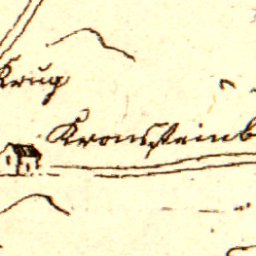 Krug
Kronsteinb